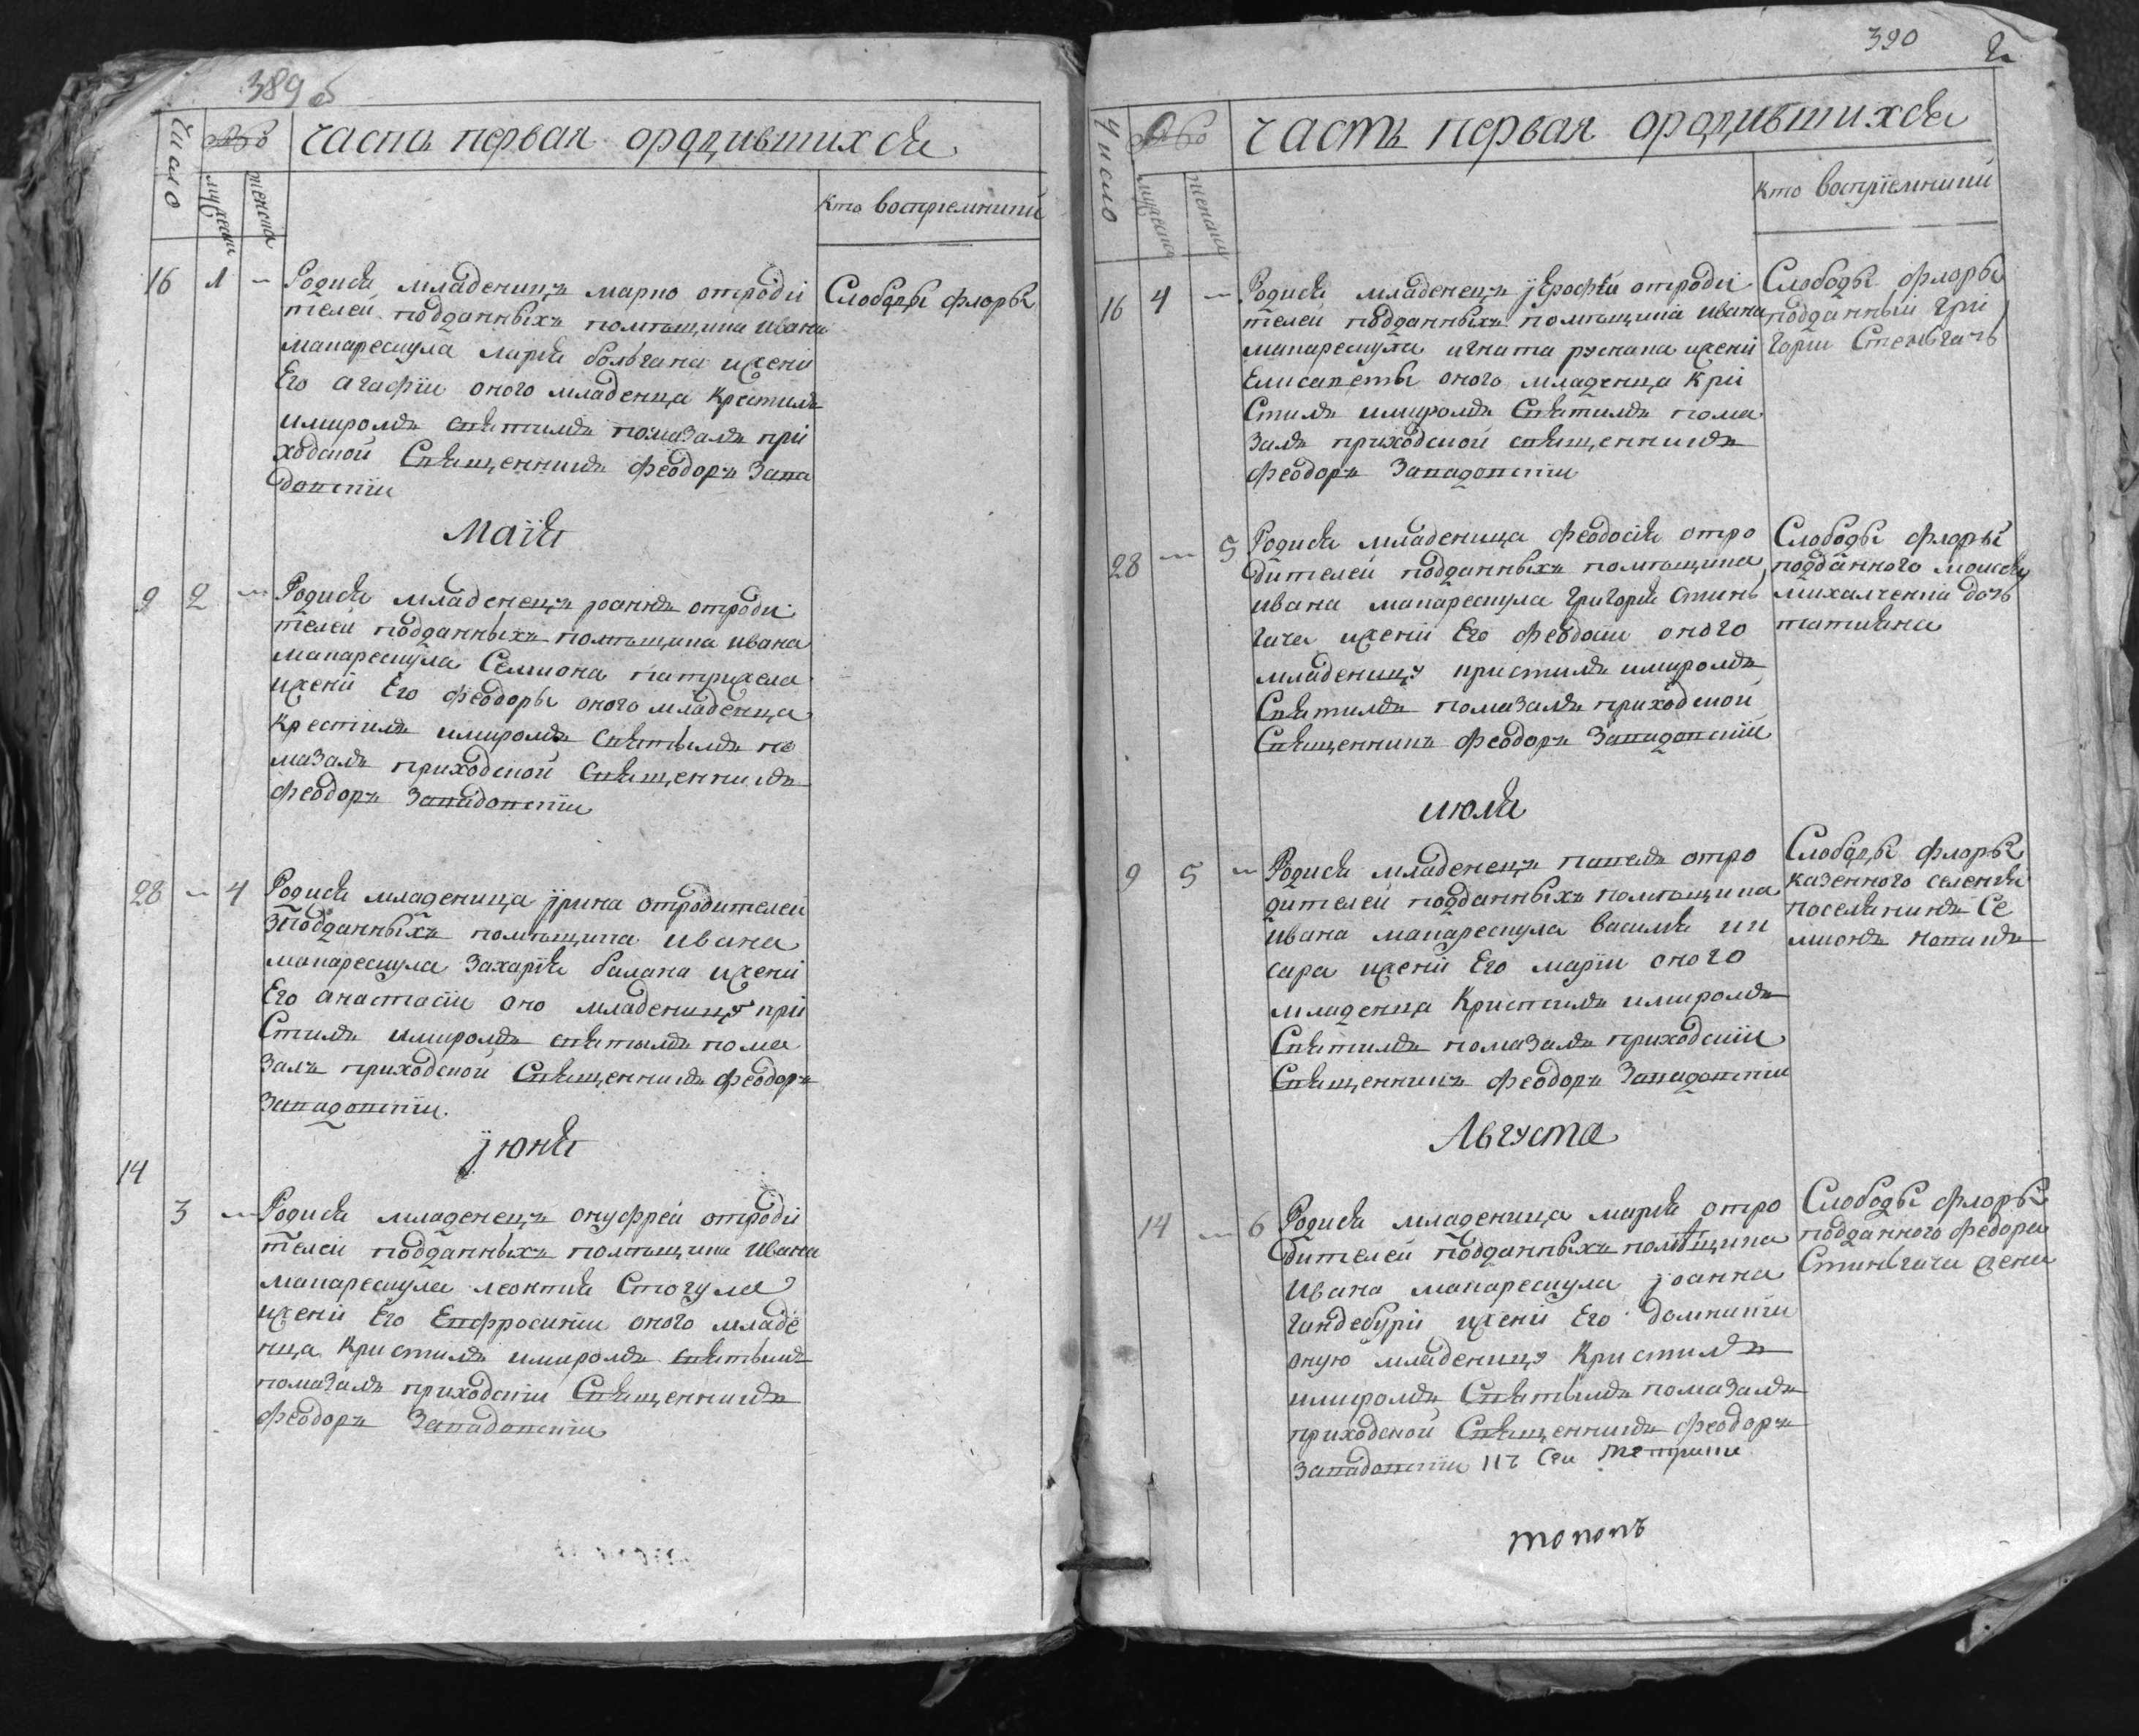 389 об
Число
мужеска
женска
часть первая ородившихся
кто восприемники
16 1 - Родися младенецъ марко отроди
телей подданныхъ помѣщика ивана
макарескула
Его агафїи оного младенца крестилъ
имиромъ святимъ помазалъ при
ходской Священникъ феодоръ Запа
довскїи
Слободы флоры
Маїя
9 2 - Родися младенецъ јоаннъ отроди
телей подданныхъ помѣщика ивана
макарескула Семиона
ижени Его феодоры оного младенца
крестилъ имиромъ святымъ по
мазалъ приходской Священникъ
феодоръ Западовскїи
28 - 4 Родися младеница јрина отродителей
подданныхъ помѣщика ивана
макарескула Захарїя балана ижени
Его анастасїи оно младеницу кри
Стилъ имиромъ святымъ пома
залъ приходской Священникъ феодоръ
Западовскїи.
јюня
14
3 - Родися младенецъ онуфрей отроди
телей подданныхъ помѣщика ивана
макарескула леонтия Стогула
ижени Его Евфросинїи оного младе
нца кристилъ имиромъ святымъ
помазалъ приходскїи Священникъ
феодоръ Западовскїи
390
2
Число
мужеска
женска
часть первая ородившихся
кто воспрїемники
16 4 - Родися младенецъ јерофей отроди
телей подданныхъ помѣщика ивана
макарескула игната руснака ижени
Елисаветы оного младенца кри
Стилъ имиромъ Святимъ пома
залъ приходской священникъ
феодоръ Западовскїи
Слободы флоры
подданный Гри
горїи
28 - 5 Родися младеница феодосїя отро
дителей подданныхъ помѣщика
ивана макарескула григорїя Стинь
гача ижени Его феодосїи оного
младеницу кристилъ имиромъ
Святимъ помазалъ приходской
Священникъ феодоръ Западовскїи
Слободы флоры
подданного
михалченка дочь
татияна
июля
9 5 - Родися младенецъ павелъ отро
дителей подданныхъ помѣщика
ивана макарескула василия пи
сара ижени Его марїи оного
младенца Кристилъ имиромъ
Святимъ помазалъ приходскїи
Священникъ феодоръ Западовскїи
Слободы флоры
казенного селенїя
поселянинъ Се
мионъ новакъ
Августа
14 - 6 Родися младеница марїя отро
дителей подданныхъ помѣщика
Ивана макарескула јоанна
ижени Его домникїи
оную младеницу Кристилъ
имиромъ Святымъ помазалъ
приходской Священникъ феодоръ
Западовскїи
Слободы флоры
подданного федора
Стиньгача жена